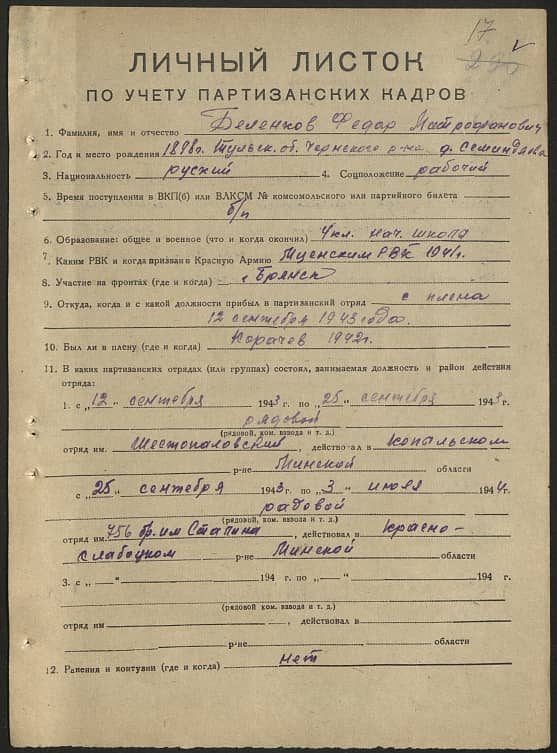 17
ЛИЧНЫЙ ЛИСТОК
ПО УЧЕТУ ПАРТИЗАНСКИХ КАДРОВ
1. Фамилия, имя и отчество Беленков Федар Митрофанович
2. Год и место рождения 1898г. Тульск. об. Чернского р-на д.
3. Национальность руский 4. Соцположение рабочий
5. Время поступления в ВКП(б) или ВЛКСМ № комсомольского или партийного билета
б/п
6. Образование: общее и военное (что и когда окончил) 4кл. нач. школа
7. Каким РВК и когда призван в Красную Армию Мценским РВК 1941г.
8. Участие на фронтах (где и когда) г Брянск
9. Откуда, когда и с какой должности прибыл в партизанский отряд с плена
12 сентября 1943 года.
10. Был ли в плену (где и когда) Корачев 1942г.
11. В каких партизанских отрядах (или группах) состоял, занимаемая должность и район действия
отряда:
1. с „12" сентября 1943 г. по „25" сентября 1943 г.
рядовой
(рядовой, ком. взвода и т. д.)
отряд им. Шестопаловский, действовал в Копыльском
р-не Минской области
с „25" сентября 1943 г. по „3" июля 1944 г.
рядовой
(рядовой, ком. взвода и т. д.)
отряд им. 756 бр. им Сталина, действовал в Красно-
слабоцком р-не Минской области
3. с „—" 194 г. по „—" 194 г.
(рядовой ком. взвода и т. д.)
отряд им , действовал в
р-не области
12. Ранения и контузии (где и когда) нет